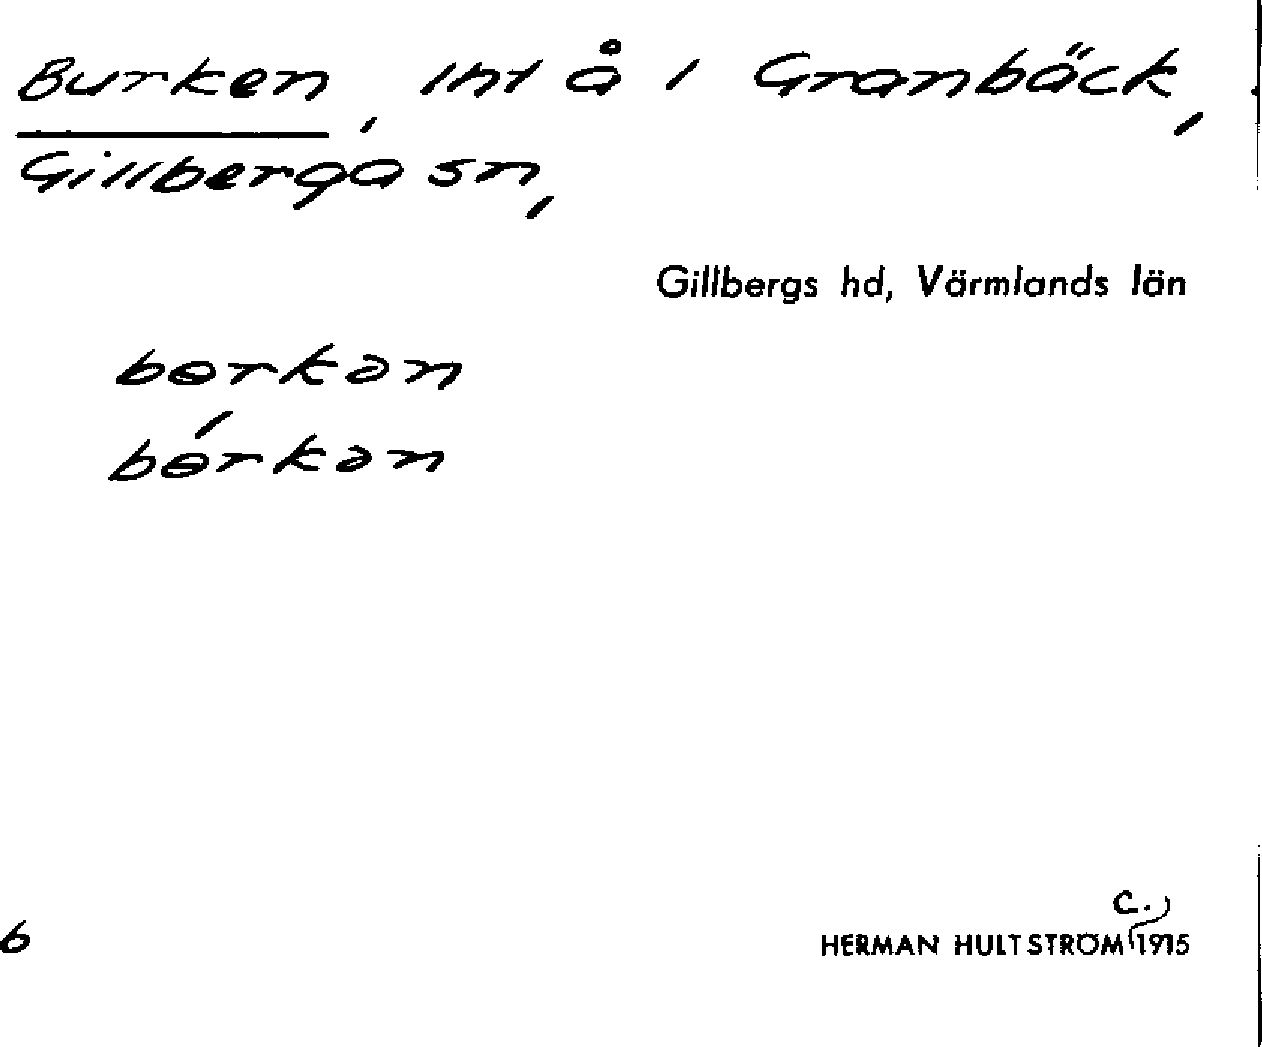 Burken, int å i Granbäck,
Gillberga sn,
Gillbergs hd, Värmlands län
bɵrkən
bɵ́rkən
c.
6 HERMAN HULTSTRÖM 1915